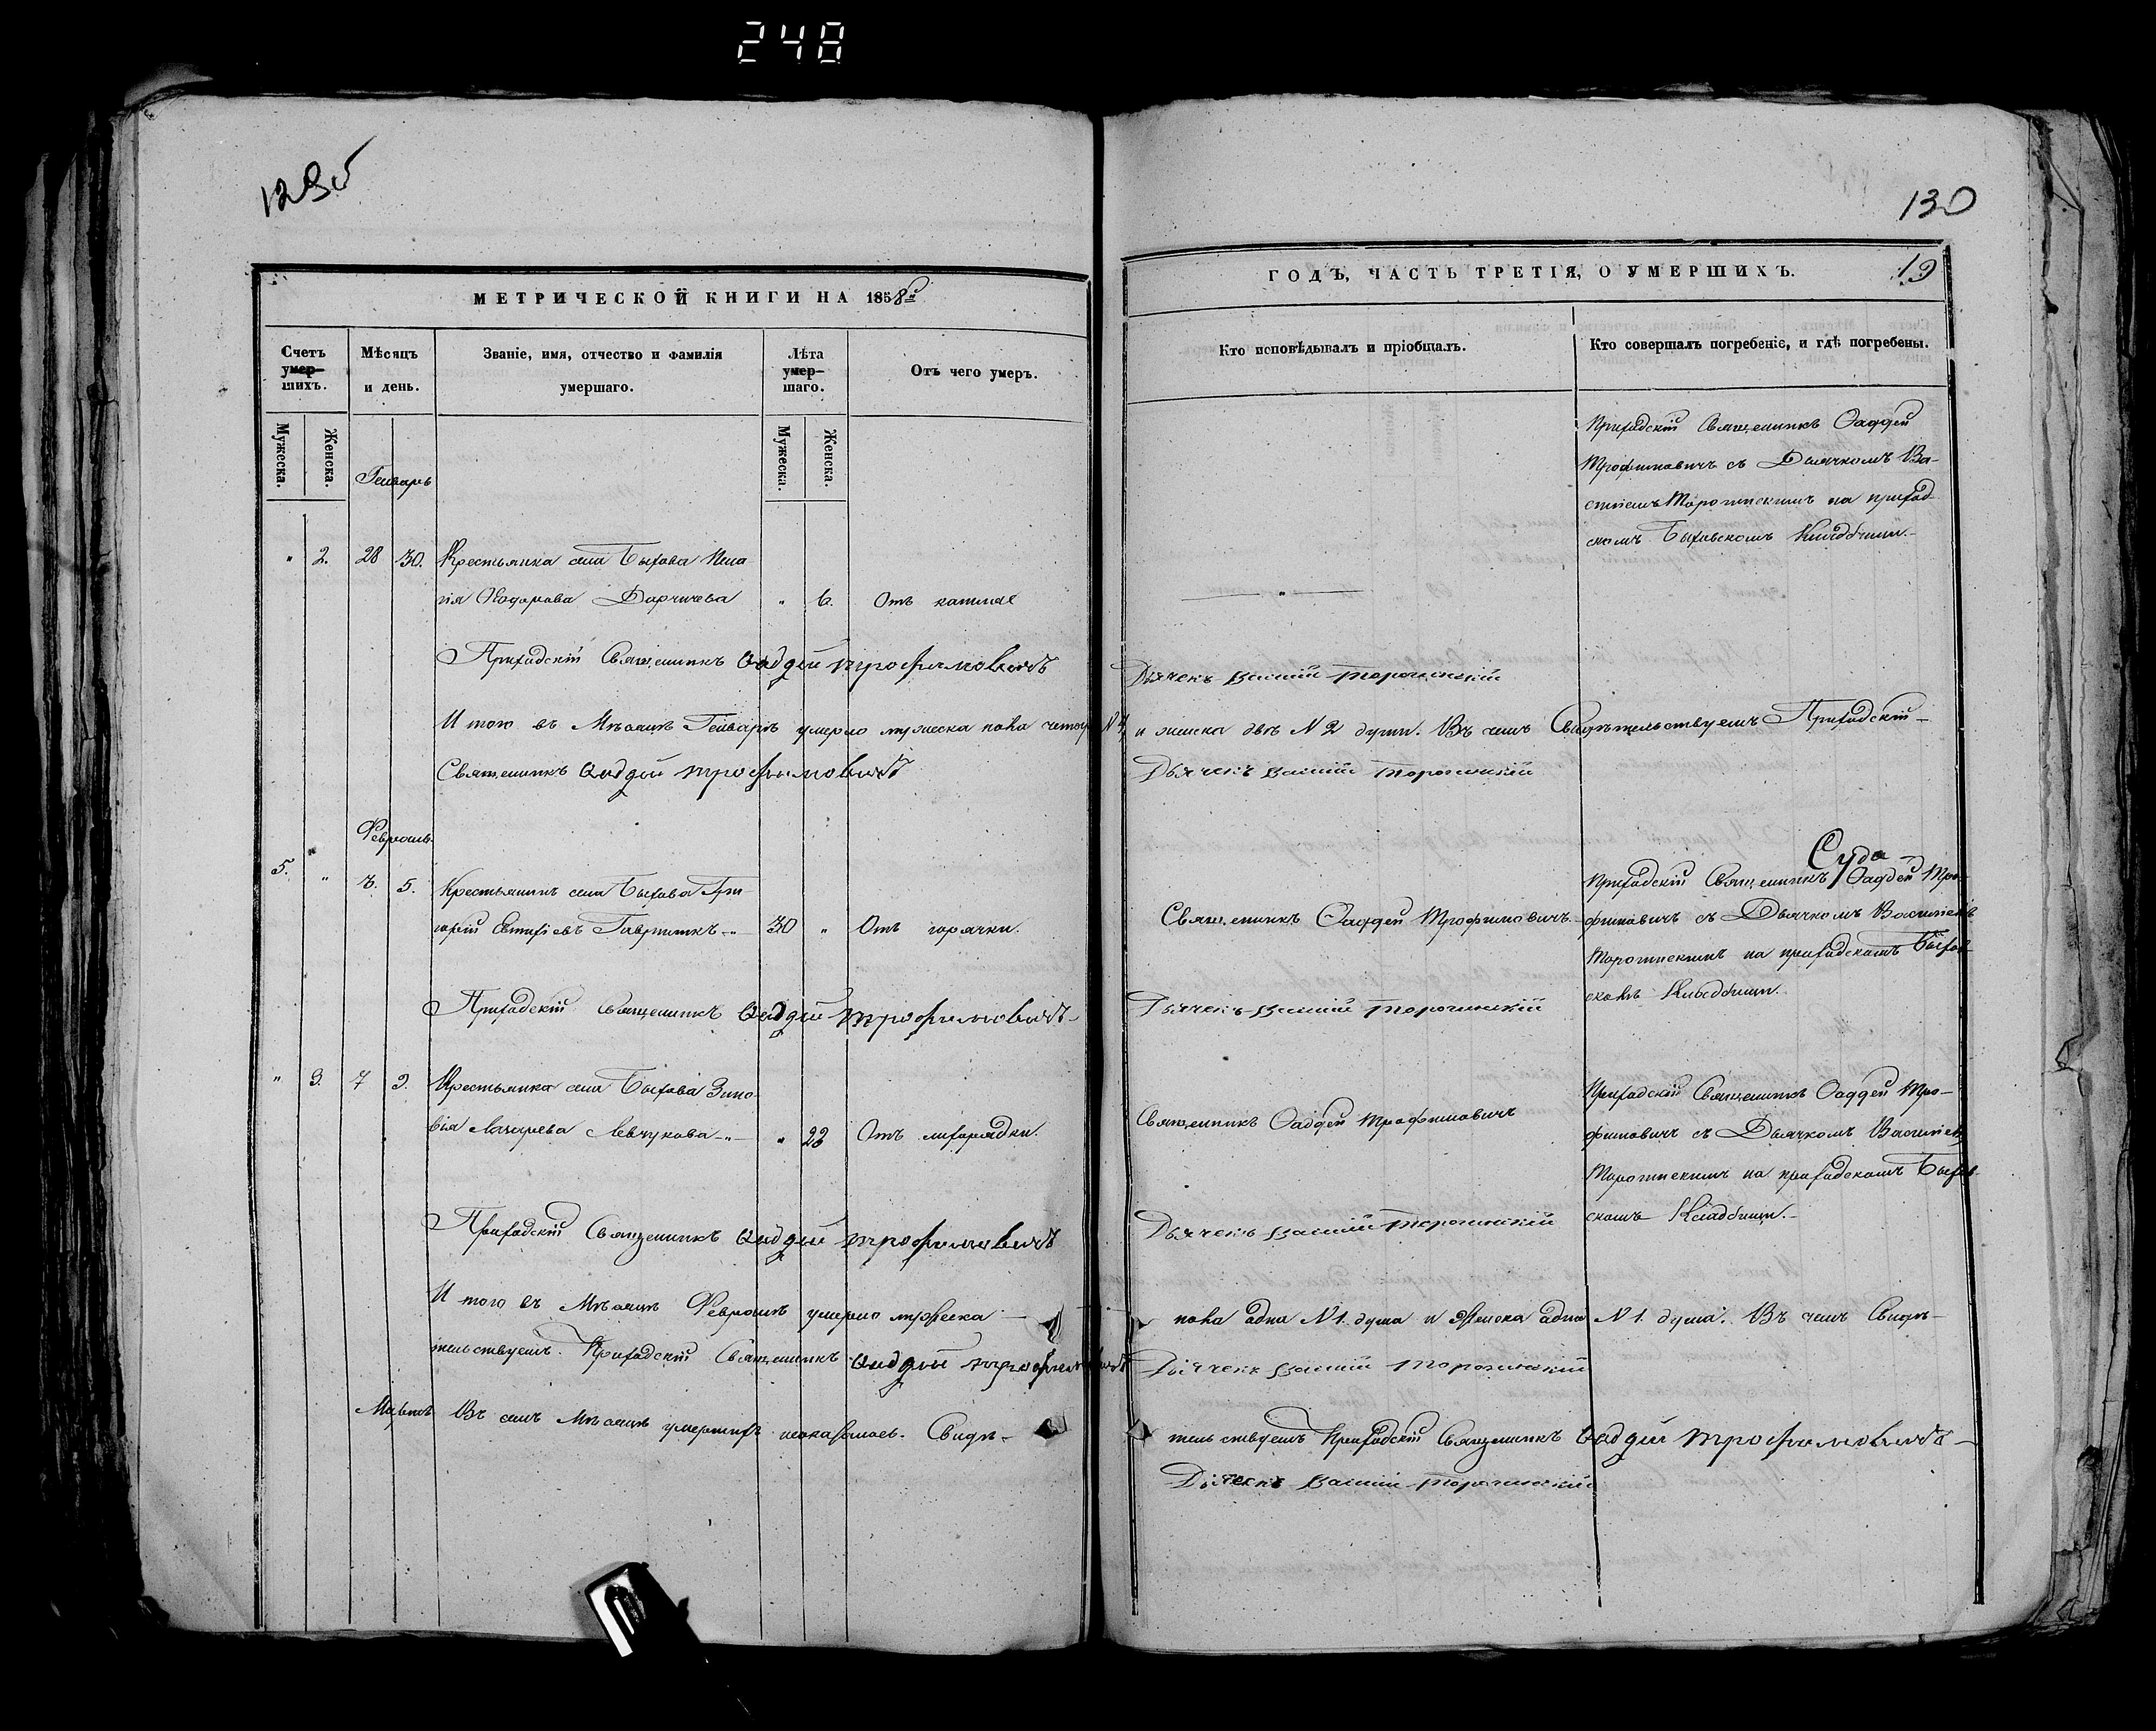 248
129об
130
МЕТРИЧЕСКОЙ КНИГИ НА 1858й
ГОДЪ, ЧАСТЬ ТРЕТІЯ, О УМЕРШИХЪ.
19
Счетъ умер-шихъ.
Мѣсяцъ и день.
Званіе, имя, отчество и фамилія умершаго.
Лѣта умер-шаго.
Отъ чего умеръ.
Кто исповѣдывалъ и пріобщалъ.
Кто совершалъ погребеніе, и гдѣ погребены.
Мужеска.
Женска.
Мужеска.
Женска.
Генварь
Приходскій Священникъ Фаддей
Трофимовичъ съ Дьячкомъ Ва-
силіемъ на приход-
скомъ Быховскомъ Кладбищи.-
" 2. 28 30. Крестьянка села Быхова Пела
гія Дарчичева " 6. Отъ кашля
"
Приходскій Священникъ Фаддей Трофимовичъ
Дьячекъ Василій
И того въ Мѣсяцѣ Генварѣ умерло мужеска пола четыре N 4, и женска двѣ N 2 души. Въ чемъ Свидѣтельствуемъ Приходскій
Священникъ Фаддей Трофимовичъ
Дьячекъ Василій
Февраль
5. " 3. 5. Крестьянинъ села Быхова Гри-
горій Евтифіевъ 30 " Отъ горячки.
Священникъ Фаддей Трофимовичъ.
Суда
Приходскій Священникъ Фаддей Тро-
фимовичъ съ Дьячкомъ Василіемъ
на приходскомъ Быхов-
скомъ Кладбищи.
Приходскій Священникъ Фаддей Трофимовичъ
Дьячекъ Василій
" 3. 7 9. Крестьянка села Быхова Зино-
вія Лазарева Левчукова " 23 Отъ лихорадки.
Священникъ Фаддей Трофимовичъ
Приходскій Священникъ Фаддей Тро-
фимовичъ съ Дьячкомъ Василіемъ
на приходскомъ Быхов-
скомъ Кладбищи.-
Приходскій Священникъ Фаддей Трофимовичъ
Дьячекъ Василій
И того въ Мѣсяцѣ Февралѣ умерло мужеска пола одна N 1. душа и Женска одна N 1. душа. Въ чемъ Свидѣ-
тельствуемъ. Приходскій Священникъ Фаддей Трофимовичъ
Дьячекъ Василій
Мартъ Въ семъ Мѣсяцѣ умершихъ неоказалось. Свидѣ-
тельствуемъ Приходскій Священникъ Фаддей Трофимовичъ
Дьячекъ Василій